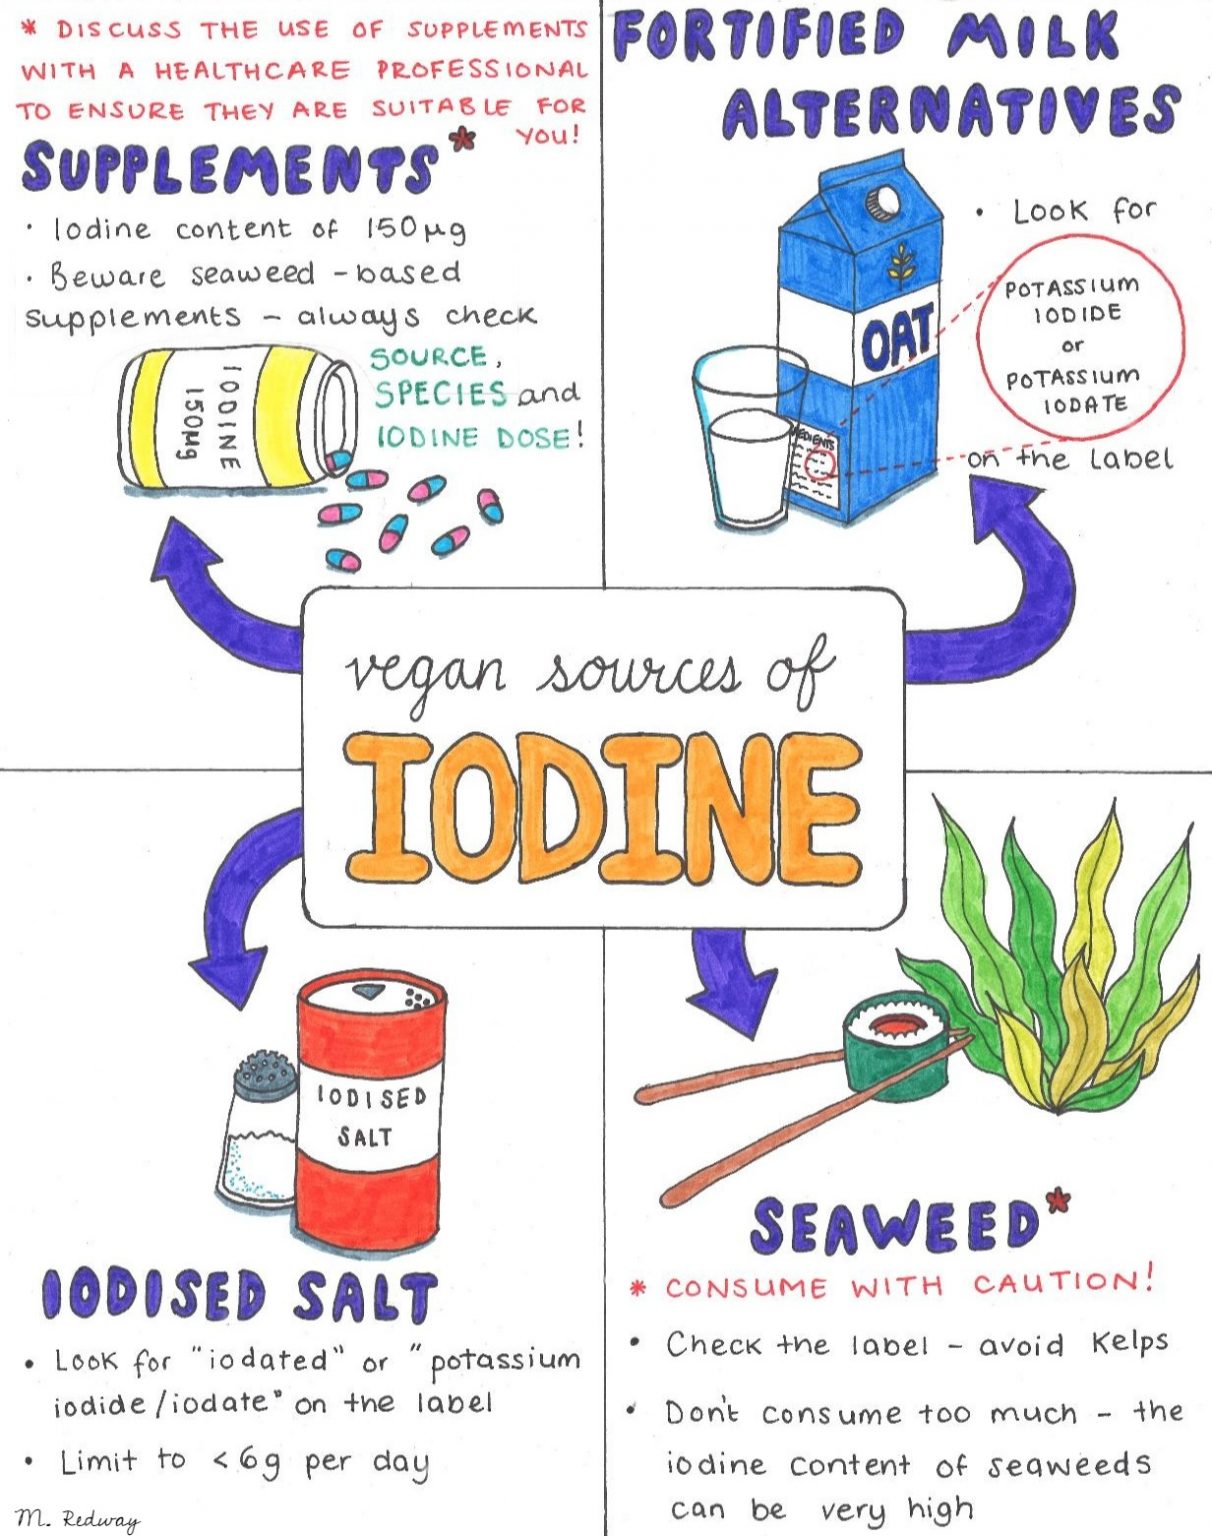 * DISCUSS THE USE OF SUPPLEMENTS
WITH A HEALTHCARE PROFESSIONAL
TO ENSURE THEY ARE SUITABLE FOR
YOU!
SUPPLEMENTS*
• Iodine content of 150μg
• Beware seaweed - based
supplements - always check
SOURCE,
SPECIES and
IODINE DOSE!
IODINE
150μg
FORTIFIED MILK
ALTERNATIVES
• Look for
POTASSIUM
IODIDE
or
POTASSIUM
IODATE
on the label
OAT
vegan sources of
IODINE
IODISED
SALT
IODISED SALT
• Look for "iodated" or "potassium
iodide/iodate" on the label
• Limit to <6g per day
M. Redway
SEAWEED*
* CONSUME WITH CAUTION!
• Check the label - avoid Kelps
• Don't consume too much - the
iodine content of seaweeds
can be very high